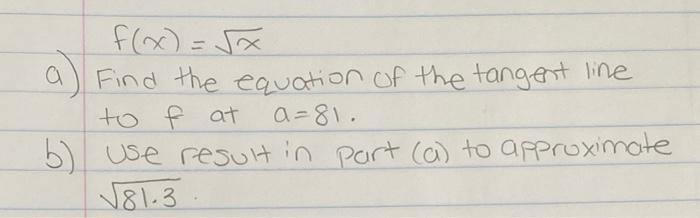 f(x) = √x
a) Find the equation of the tangent line
to f at a=81.
b) Use result in part (a) to approximate
√81.3.